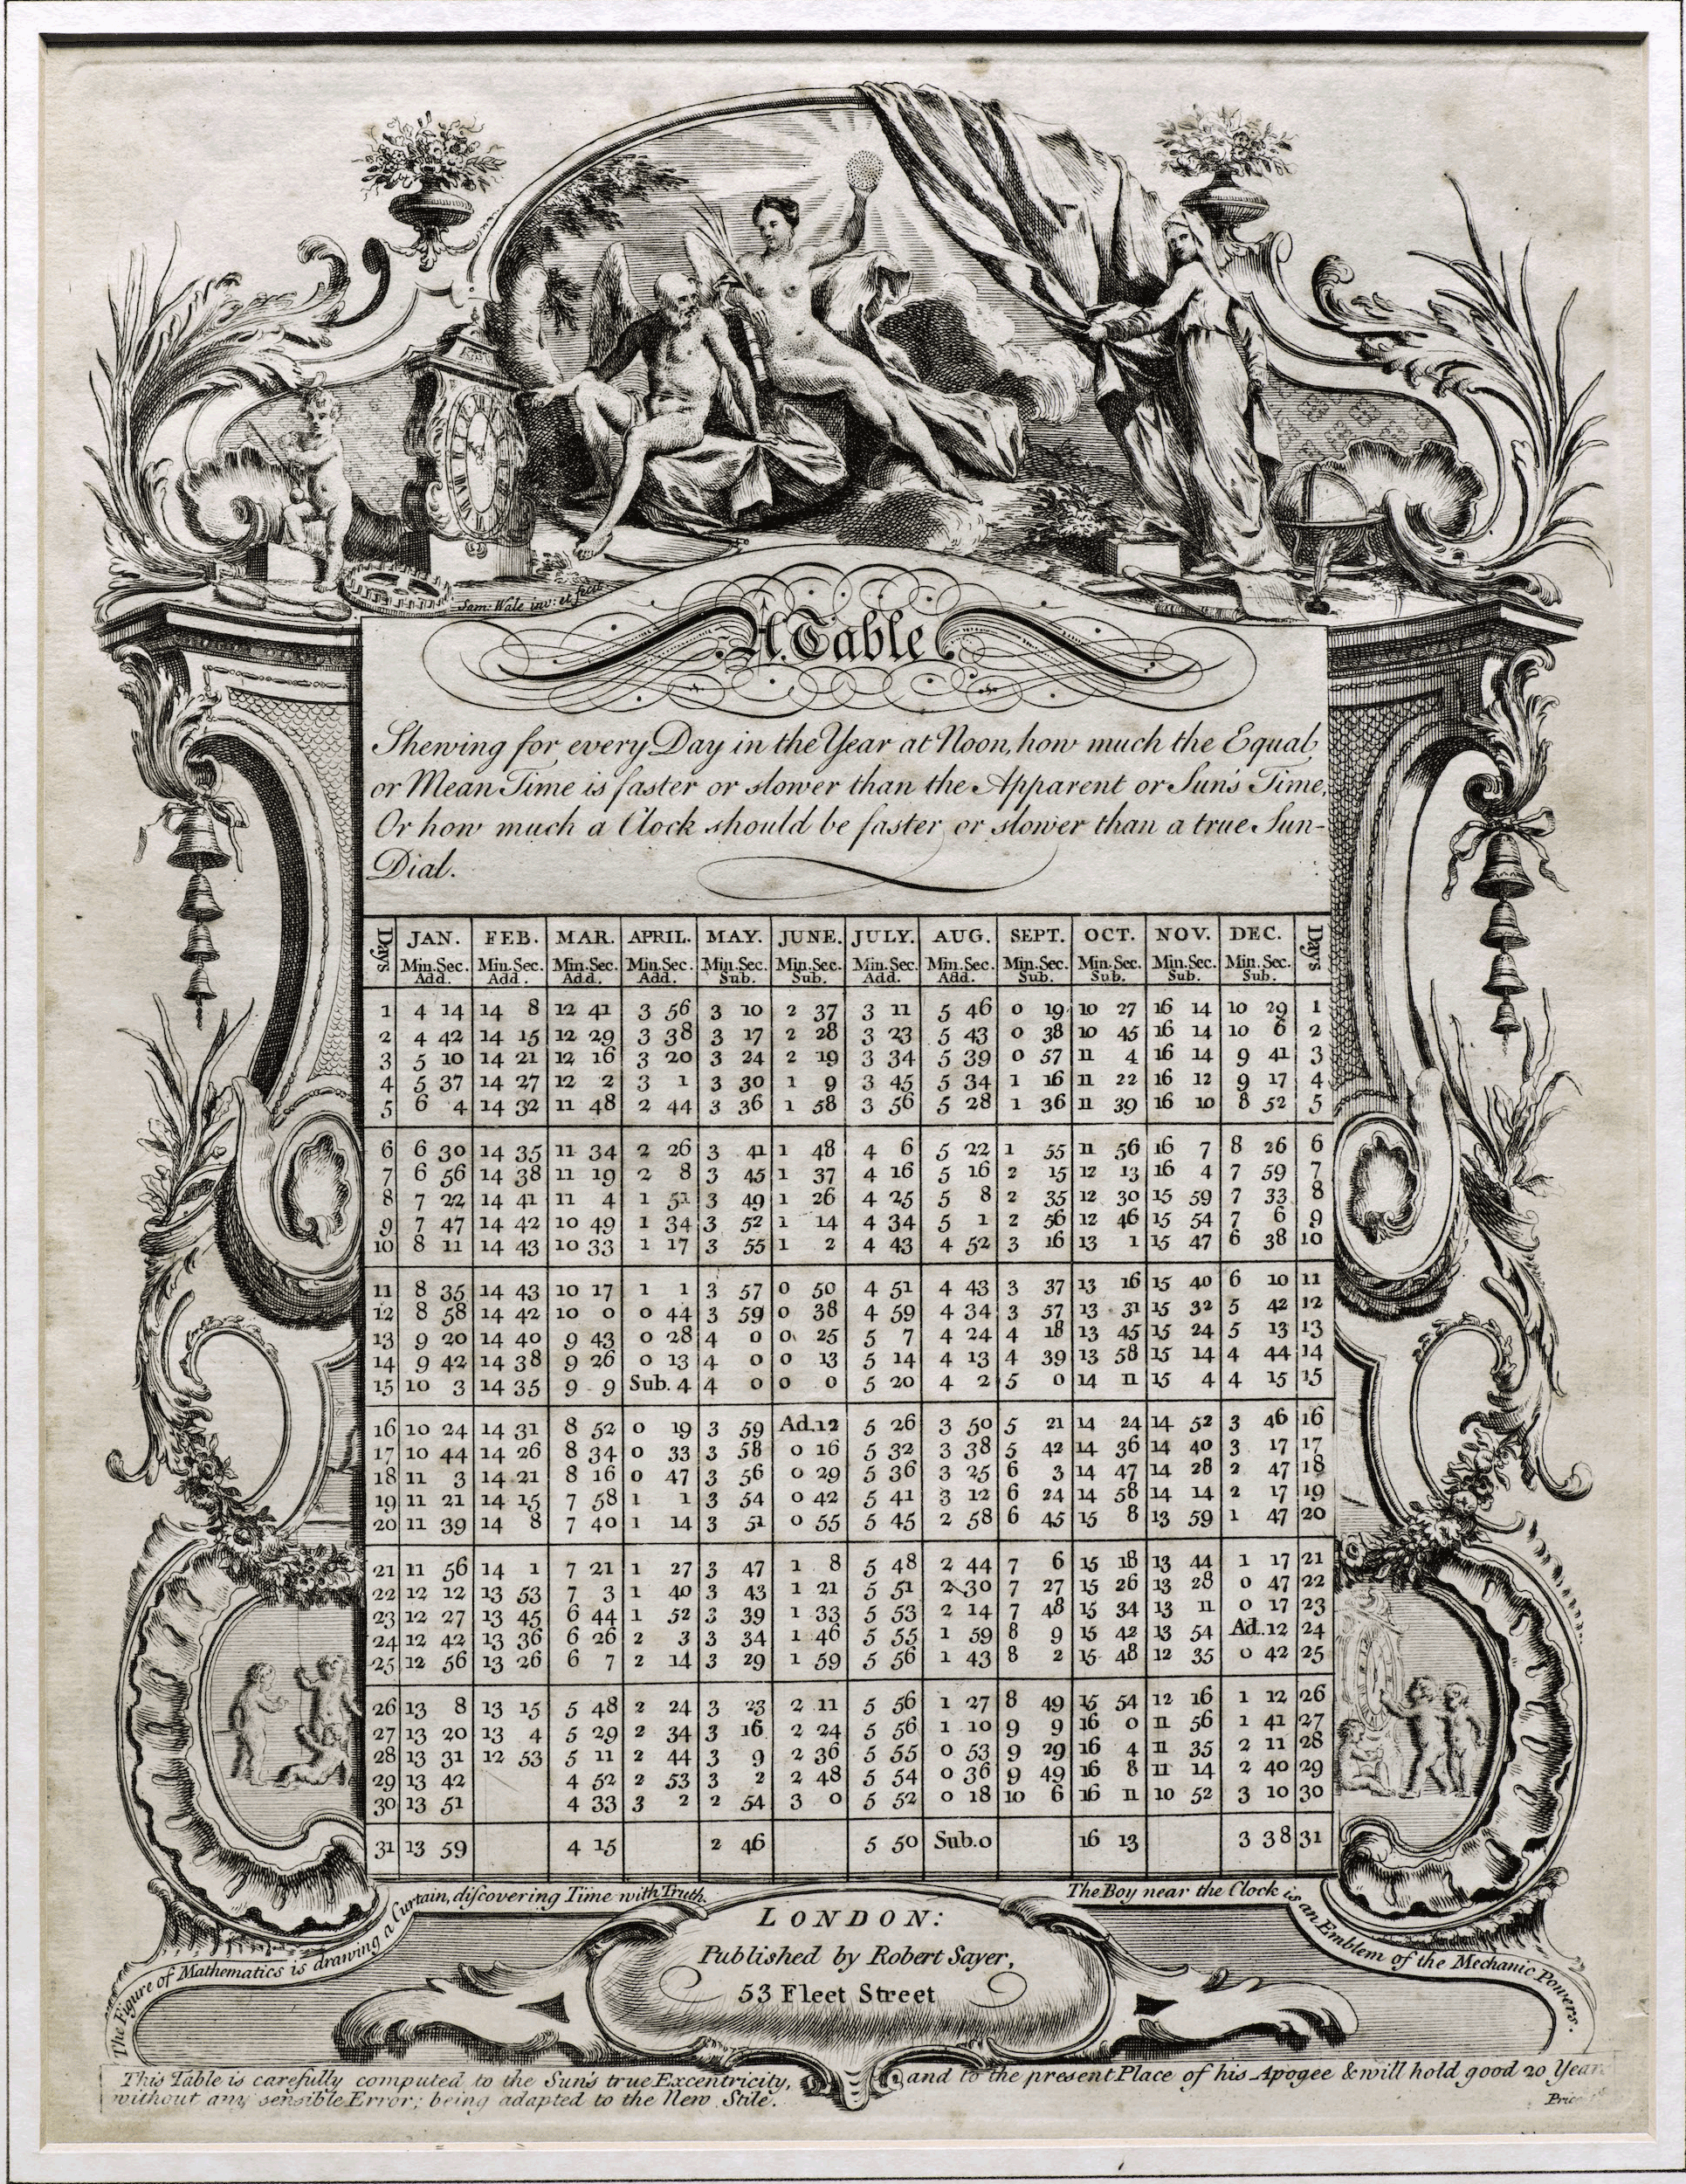 Sam: Wale inv: et fecit
A Table
Shewing for every Day in the Year at Noon, how much the Equal
or Mean Time is faster or slower than the Apparent or Sun's Time,
Or how much a Clock should be faster or slower than a true Sun-
Dial.
Days JAN. FEB. MAR. APRIL. MAY. JUNE. JULY. AUG. SEPT. OCT. NOV. DEC. Days
Min. Sec. Min. Sec. Min. Sec. Min. Sec. Min. Sec. Min. Sec. Min. Sec. Min. Sec. Min. Sec. Min. Sec. Min. Sec. Min. Sec.
Add. Add. Add. Add. Sub. Sub. Add. Add. Sub. Sub. Sub. Sub.
1 4 14 14 8 12 41 3 56 3 10 2 37 3 11 5 46 0 19 10 27 16 14 10 29 1
2 4 42 14 15 12 29 3 38 3 17 2 28 3 23 5 43 0 38 10 45 16 14 10 6 2
3 5 10 14 21 12 16 3 20 3 24 2 19 3 34 5 39 0 57 11 4 16 14 9 41 3
4 5 37 14 27 12 2 3 1 3 30 1 9 3 45 5 34 1 16 11 22 16 12 9 17 4
5 6 4 14 32 11 48 2 44 3 36 1 58 3 56 5 28 1 36 11 39 16 10 8 52 5
6 6 30 14 35 11 34 2 26 3 41 1 48 4 6 5 22 1 55 11 56 16 7 8 26 6
7 6 56 14 38 11 19 2 8 3 45 1 37 4 16 5 16 2 15 12 13 16 4 7 59 7
8 7 22 14 41 11 4 1 51 3 49 1 26 4 25 5 8 2 35 12 30 15 59 7 33 8
9 7 47 14 42 10 49 1 34 3 52 1 14 4 34 5 1 2 56 12 46 15 54 7 6 9
10 8 11 14 43 10 33 1 17 3 55 1 2 4 43 4 52 3 16 13 1 15 47 6 38 10
11 8 35 14 43 10 17 1 1 3 57 0 50 4 51 4 43 3 37 13 16 15 40 6 10 11
12 8 58 14 42 10 0 0 44 3 59 0 38 4 59 4 34 3 57 13 31 15 32 5 42 12
13 9 20 14 40 9 43 0 28 4 0 0 25 5 7 4 24 4 18 13 45 15 24 5 13 13
14 9 42 14 38 9 26 0 13 4 0 0 13 5 14 4 13 4 39 13 58 15 14 4 44 14
15 10 3 14 35 9 9 Sub. 4 4 0 0 0 5 20 4 2 5 0 14 11 15 4 4 15 15
16 10 24 14 31 8 52 0 19 3 59 Ad. 12 5 26 3 50 5 21 14 24 14 52 3 46 16
17 10 44 14 26 8 34 0 33 3 58 0 16 5 32 3 38 5 42 14 36 14 40 3 17 17
18 11 3 14 21 8 16 0 47 3 56 0 29 5 36 3 25 6 3 14 47 14 28 2 47 18
19 11 21 14 15 7 58 1 1 3 54 0 42 5 41 3 12 6 24 14 58 14 14 2 17 19
20 11 39 14 8 7 40 1 14 3 51 0 55 5 45 2 58 6 45 15 8 13 59 1 47 20
21 11 56 14 1 7 21 1 27 3 47 1 8 5 48 2 44 7 6 15 18 13 44 1 17 21
22 12 12 13 53 7 3 1 40 3 43 1 21 5 51 2 30 7 27 15 26 13 28 0 47 22
23 12 27 13 45 6 44 1 52 3 39 1 33 5 53 2 14 7 48 15 34 13 11 0 17 23
24 12 42 13 36 6 26 2 3 3 34 1 46 5 55 1 59 8 9 15 42 13 54 Ad. 12 24
25 12 56 13 26 6 7 2 14 3 29 1 59 5 56 1 43 8 2 15 48 12 35 0 42 25
26 13 8 13 15 5 48 2 24 3 23 2 11 5 56 1 27 8 49 15 54 12 16 1 12 26
27 13 20 13 4 5 29 2 34 3 16 2 24 5 56 1 10 9 9 16 0 11 56 1 41 27
28 13 31 12 53 5 11 2 44 3 9 2 36 5 55 0 53 9 29 16 4 11 35 2 11 28
29 13 42 4 52 2 53 3 2 2 48 5 54 0 36 9 49 16 8 11 14 2 40 29
30 13 51 4 33 3 2 2 54 3 0 5 52 0 18 10 6 16 11 10 52 3 10 30
31 13 59 4 15 2 46 5 50 Sub. 0 16 13 3 38 31
The Figure of Mathematics is drawing a Curtain, discovering Time with Truth.
The Boy near the Clock is an Emblem of the Mechanic Powers.
LONDON:
Published by Robert Sayer,
53 Fleet Street
This Table is carefully computed to the Sun's true Excentricity, and to the present Place of his Apogee & will hold good 20 Years
without any sensible Error; being adapted to the New Stile.